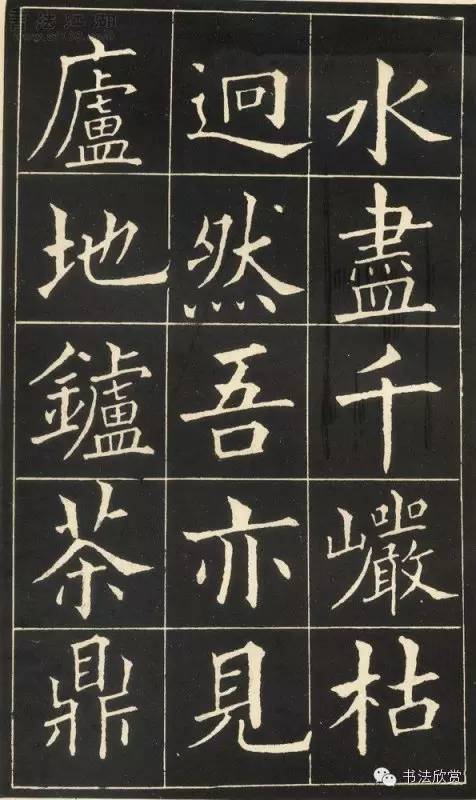 水盡千巖枯
迥然吾亦見
廬地鑪茶鼎
书法欣赏